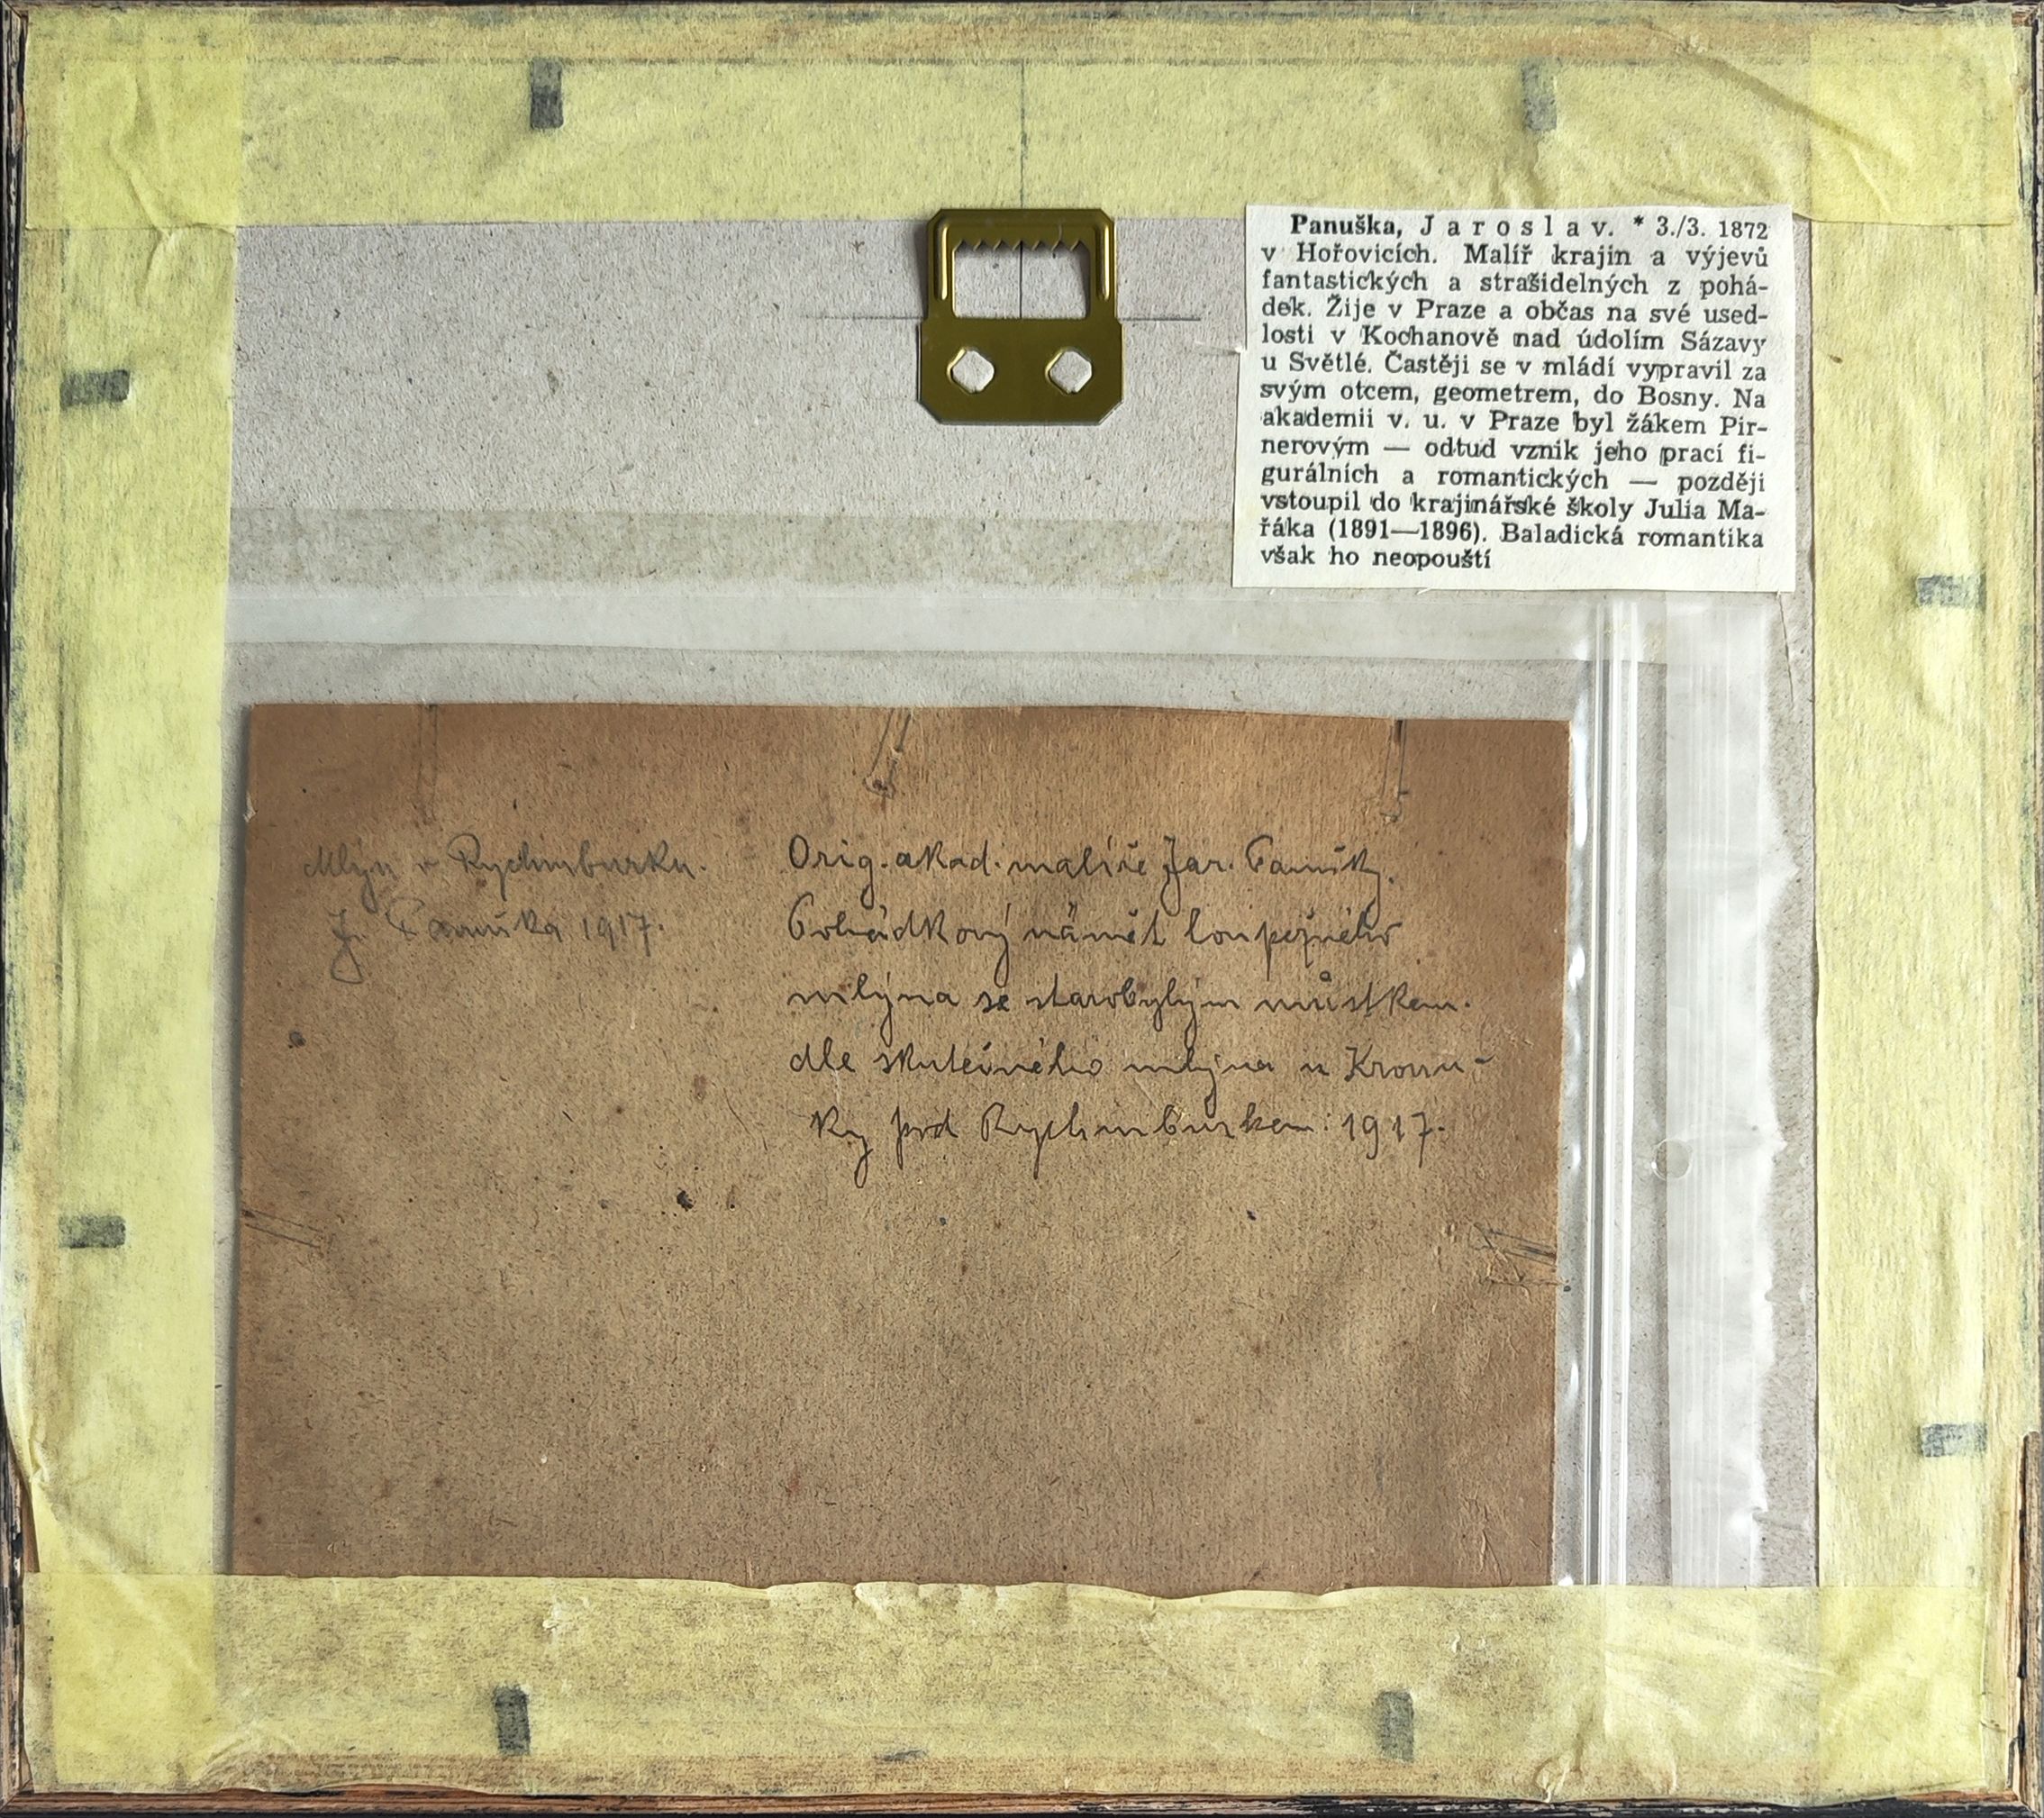 Panuška, Jaroslav. * 3./3. 1872
v Hořovicích. Malíř krajin a výjevů
fantastických a strašidelných z pohá-
dek. Žije v Praze a občas na své used-
losti v Kochanově nad údolím Sázavy
u Světlé. Častěji se v mládí vypravil za
svým otcem, geometrem, do Bosny. Na
akademii v. u. v Praze byl žákem Pir-
nerovým — odtud vznik jeho prací fi-
gurálních a romantických — později
vstoupil do krajinářské školy Julia Ma-
řáka (1891—1896). Baladická romantika
však ho neopouští
Mlýn v Rychmburku.
J. Panuška 1917.
Orig. akad. malíře Jar. Panušky.
Pohádkový námět loupežného
mlýna se starobylým můstkem.
dle skutečného mlýna u Kroun-
ky pod Rychmburkem: 1917.